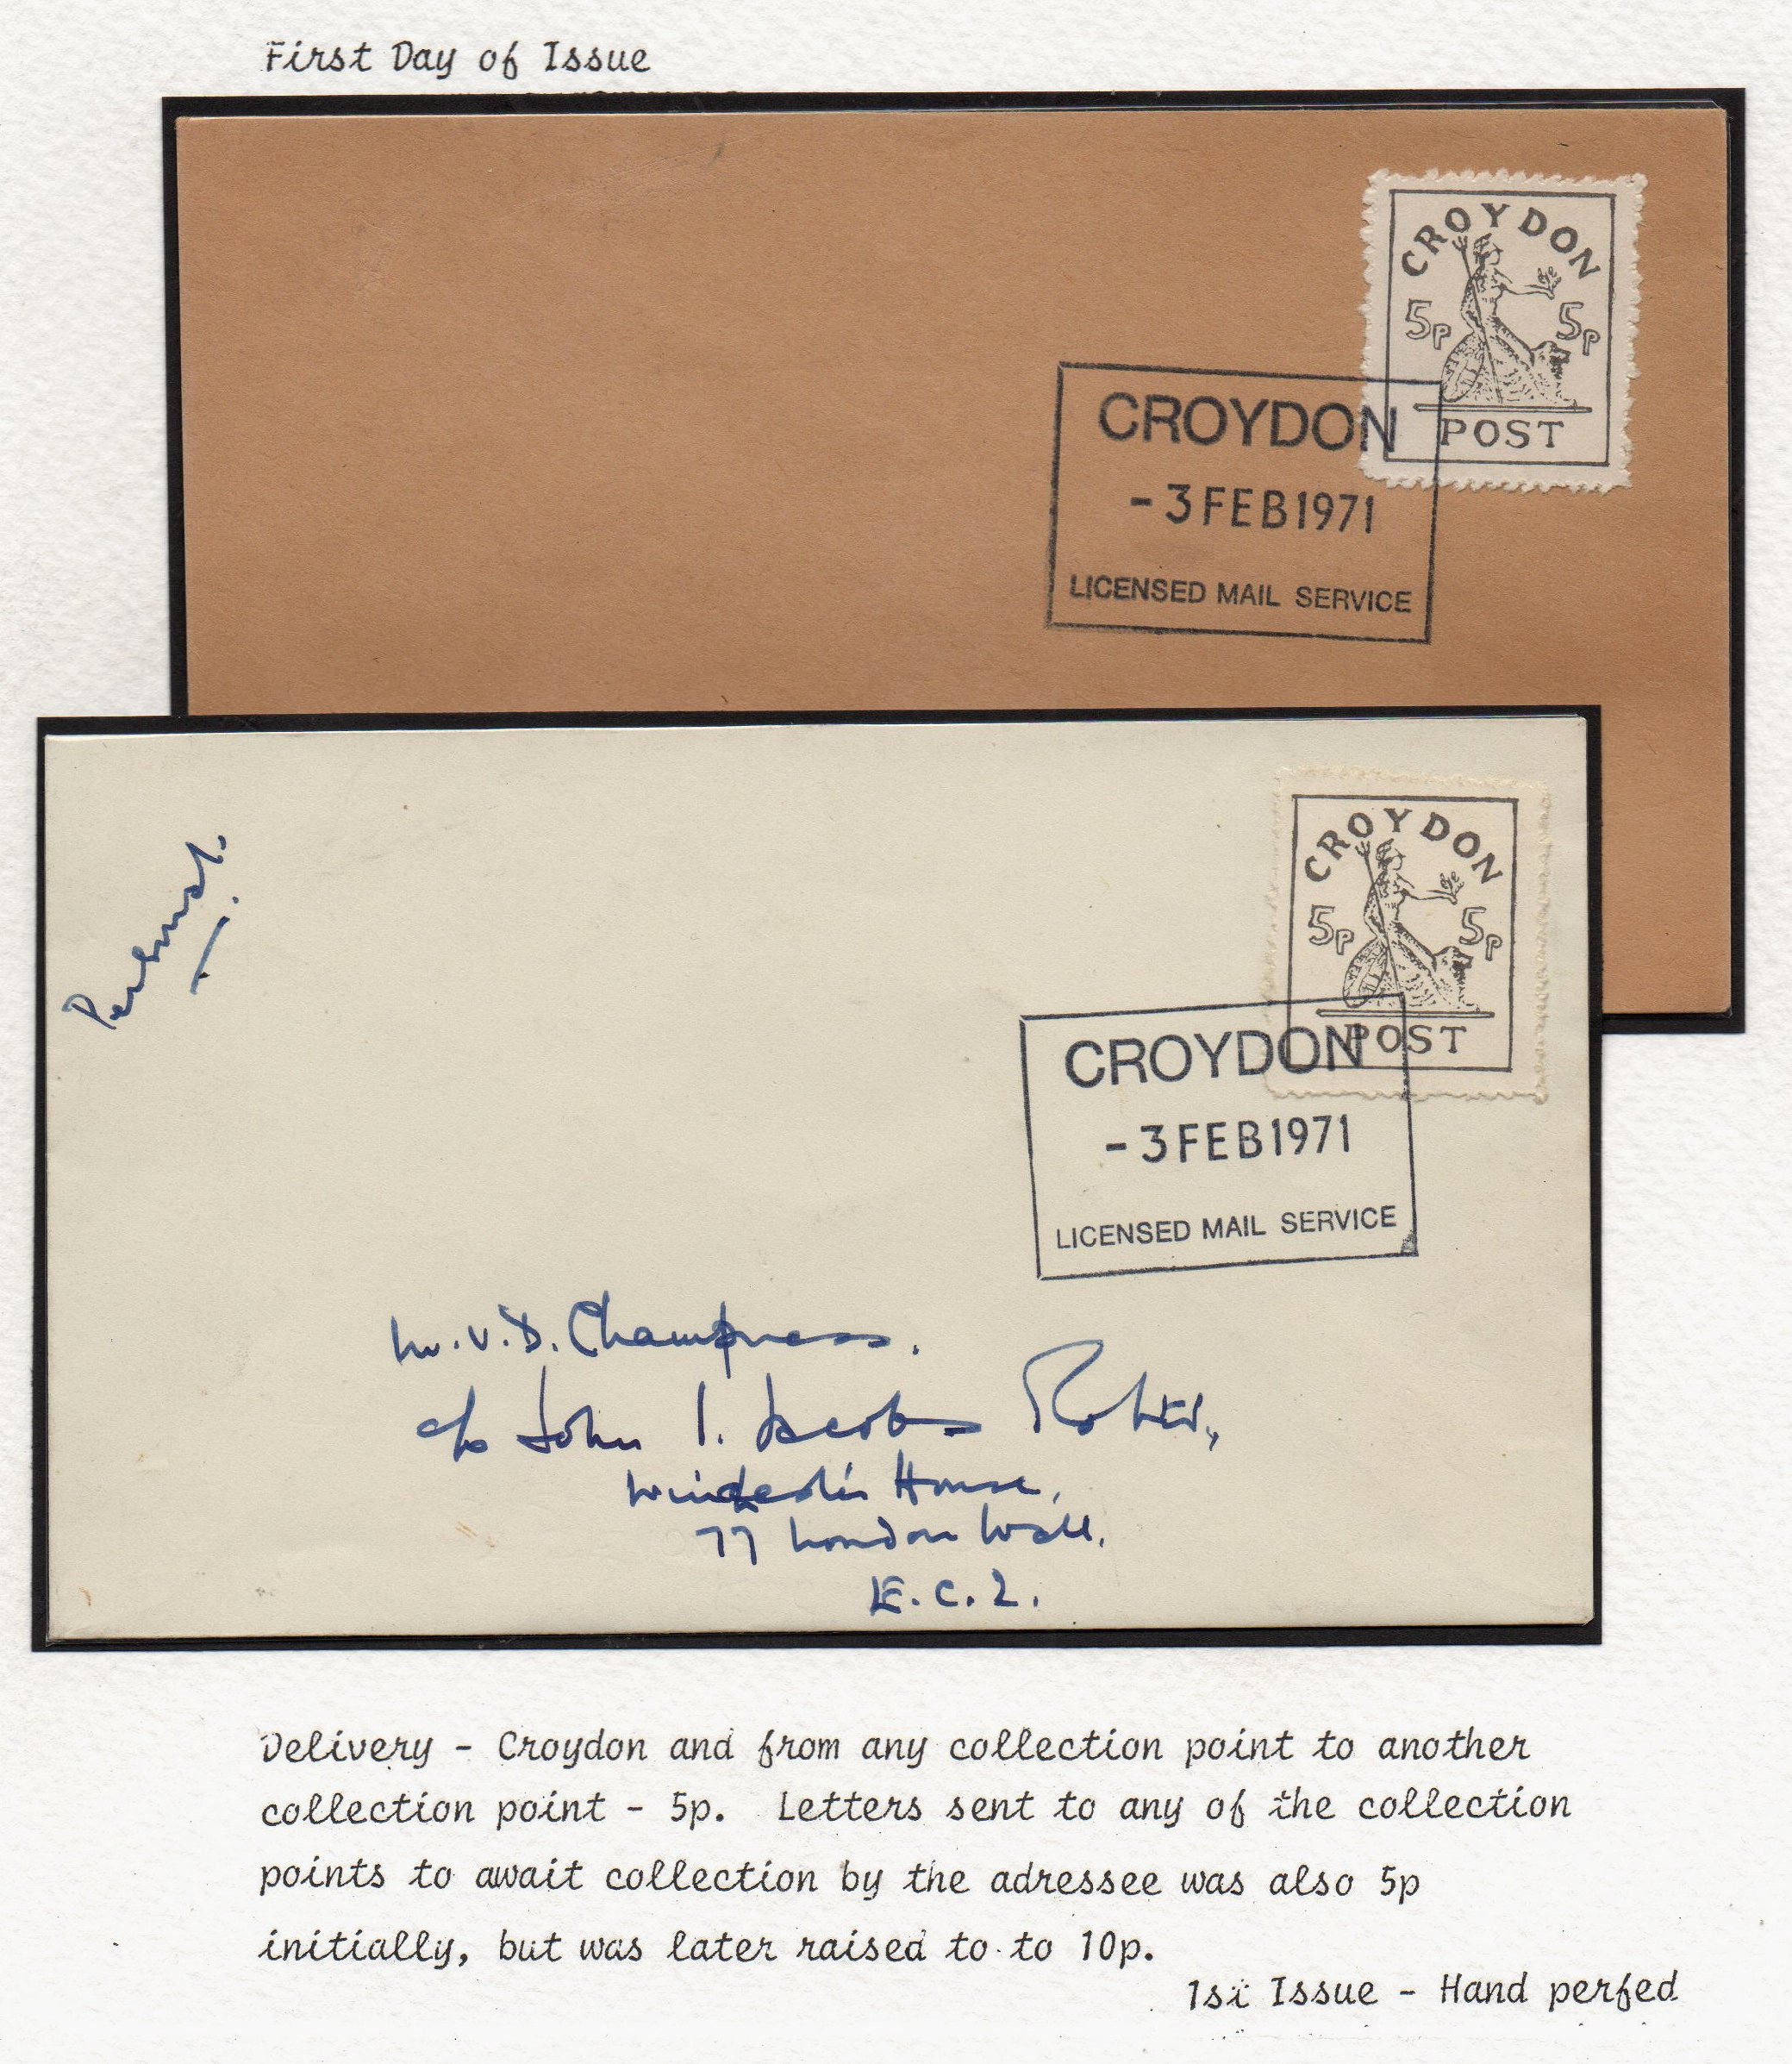 First Day of Issue
CROYDON
5p 5p
POST
CROYDON
-3 FEB 1971
LICENSED MAIL SERVICE
Personal.
CROYDON
5p 5p
POST
CROYDON
-3 FEB 1971
LICENSED MAIL SERVICE
V.D. Champness.
c/o John I. Jacobs
House,
77 London Wall.
E.C.2.
Delivery - Croydon and from any collection point to another
collection point - 5p. Letters sent to any of the collection
points to await collection by the adressee was also 5p
initially, but was later raised to to 10p.
1st Issue - Hand perfed